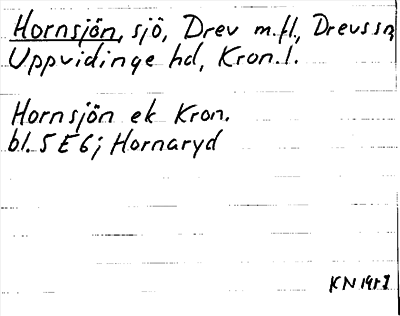 Hornsjön, sjö, Drev m.fl., Drevs sn,
Uppvidinge hd, Kron.l.
Hornsjön ek Kron.
bl. 5 E 6; Hornaryd
KN